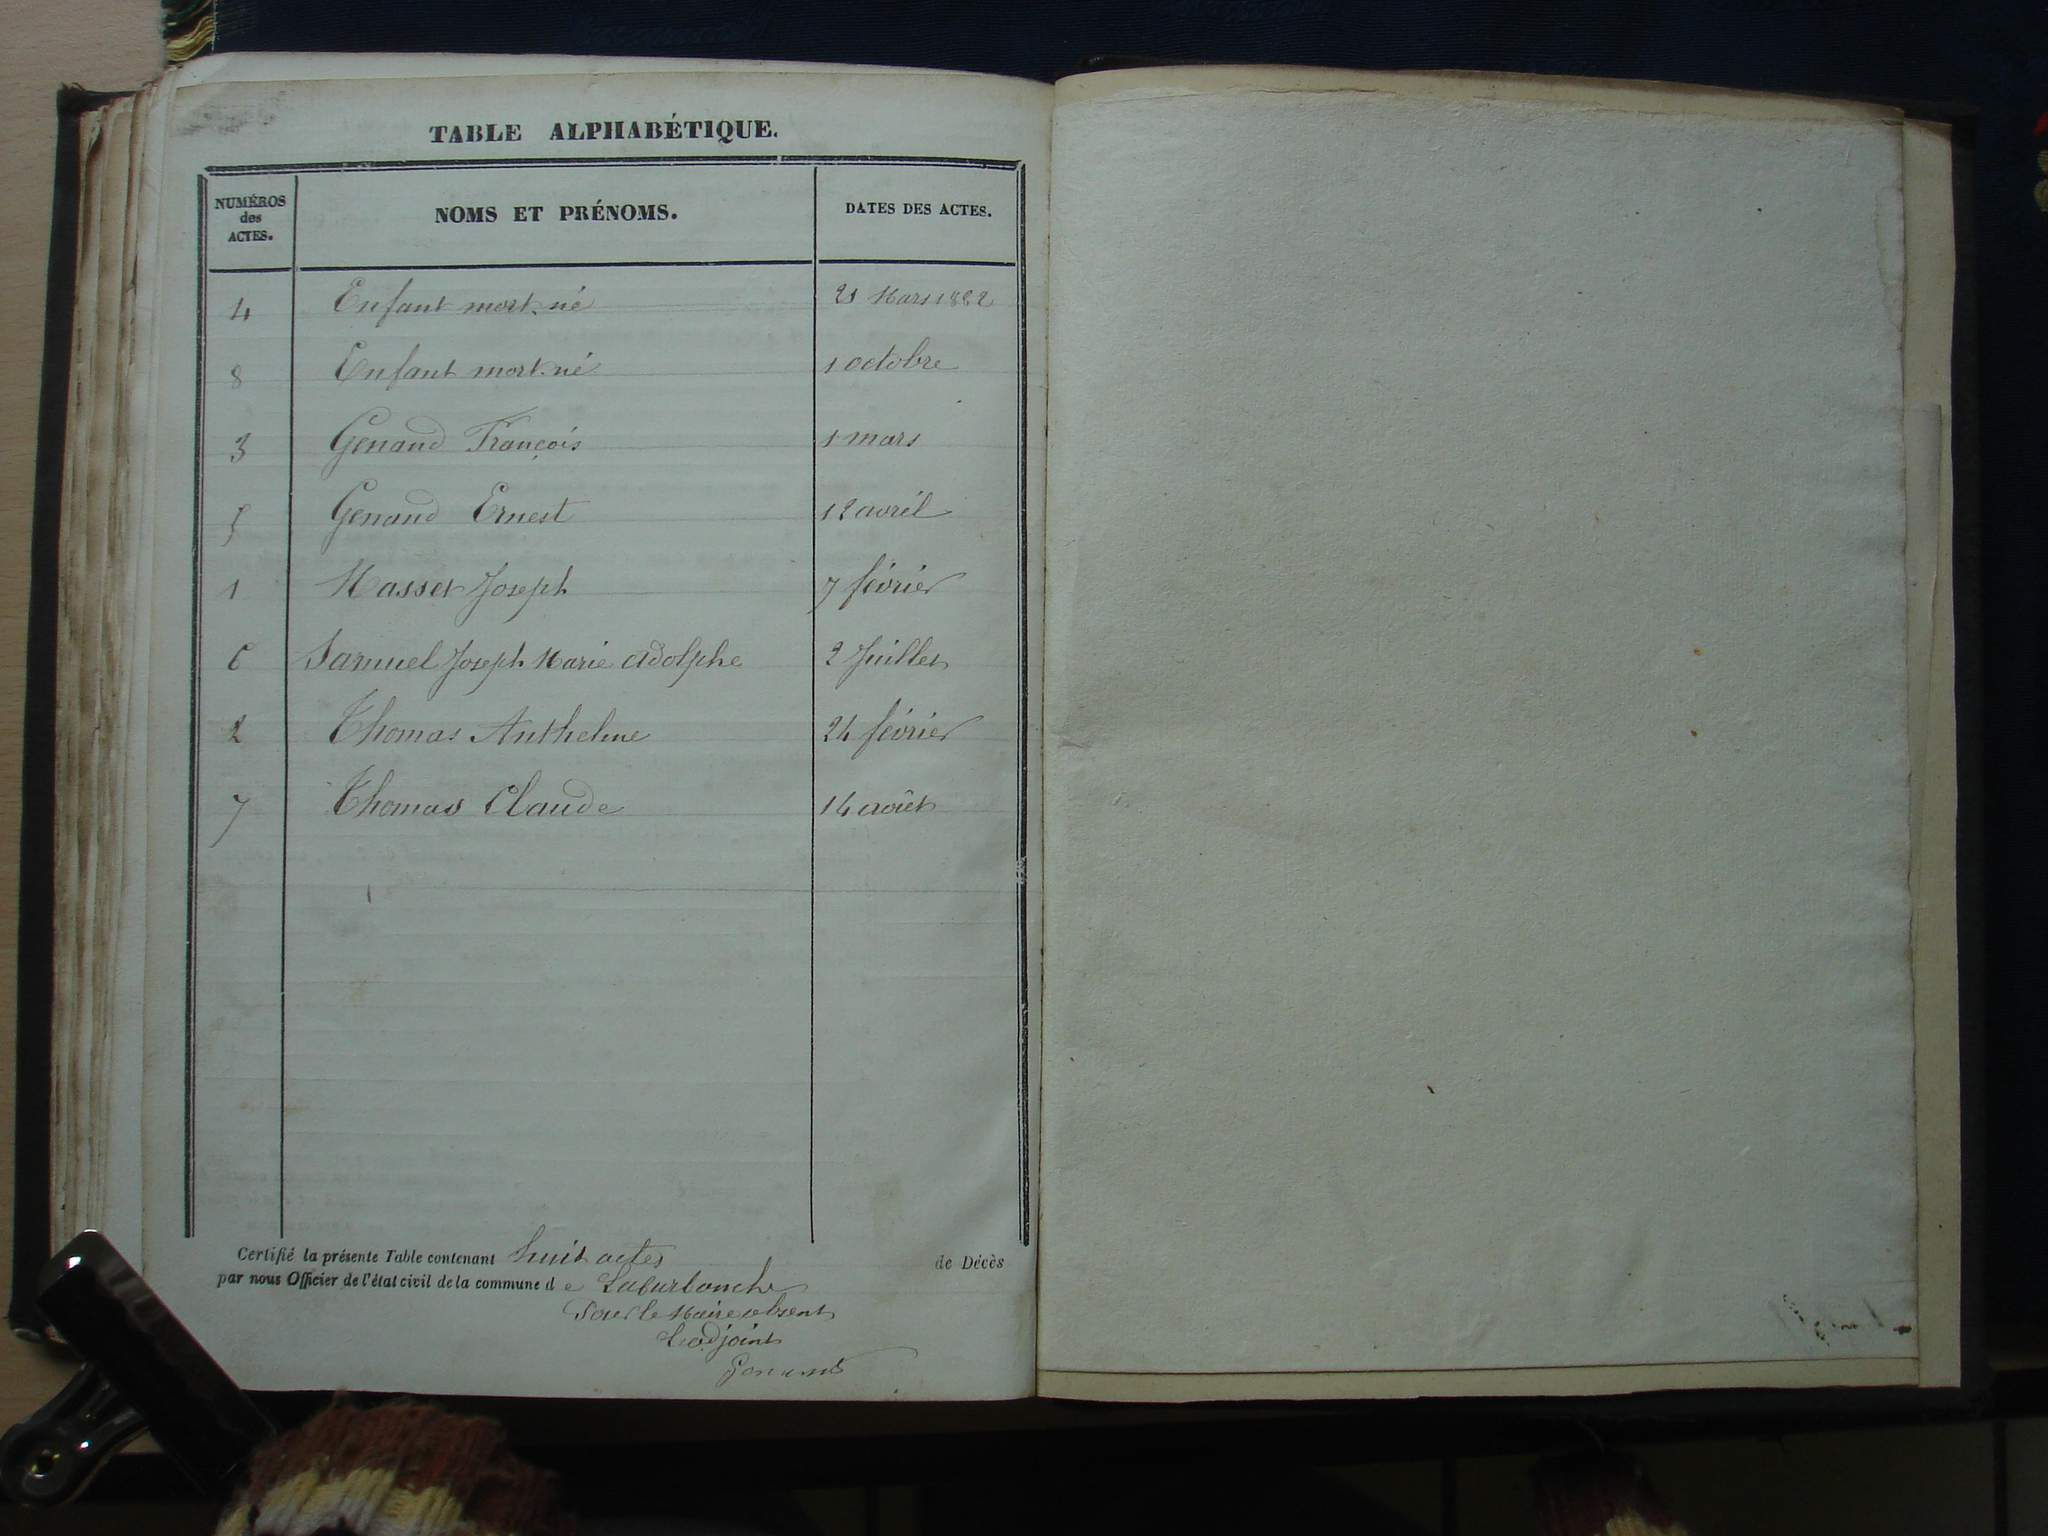 TABLE ALPHABÉTIQUE.
NUMÉROS des ACTES. NOMS ET PRÉNOMS. DATES DES ACTES.
4 Enfant mort-né 21 Mars 1882
8 Enfant mort-né 1 octobre
3 Genand François 1 mars
5 Genand Ernest 12 avril
1 Masset Joseph 7 février
6 Samuel Joseph Marie Adolphe 2 Juillet
2 Thomas Anthelme 24 février
7 Thomas Claude 14 août
Certifié la présente Table contenant huit actes de Décès
par nous Officier de l'état civil de la commune de Laburbanche
Pour le Maire absent
L'adjoint
Genand